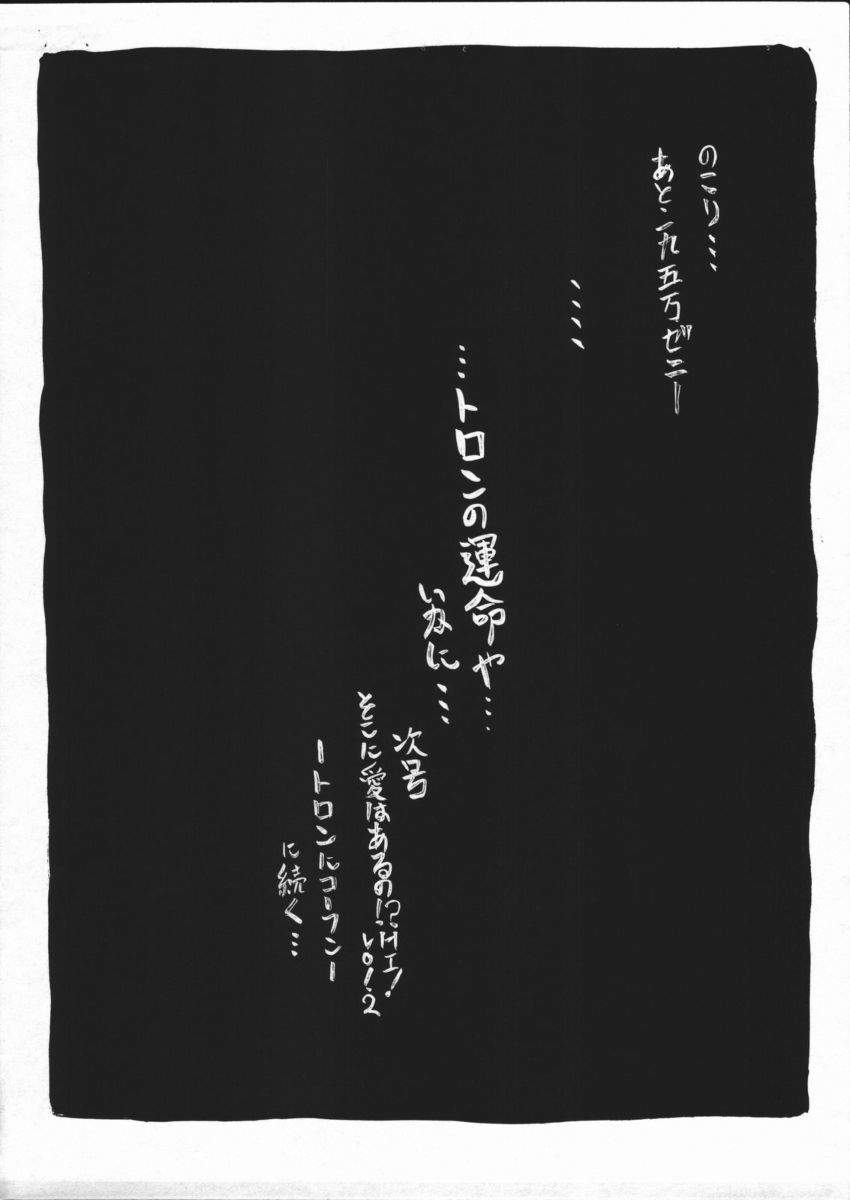 のこり・・・
あと・二九五万ゼニー
・・・・
・・・トロンの運命や・・・
いかに・・・
次号
そこに愛はあるの!?HI!
vol.2
ートロンにコーフンー
に続く・・・